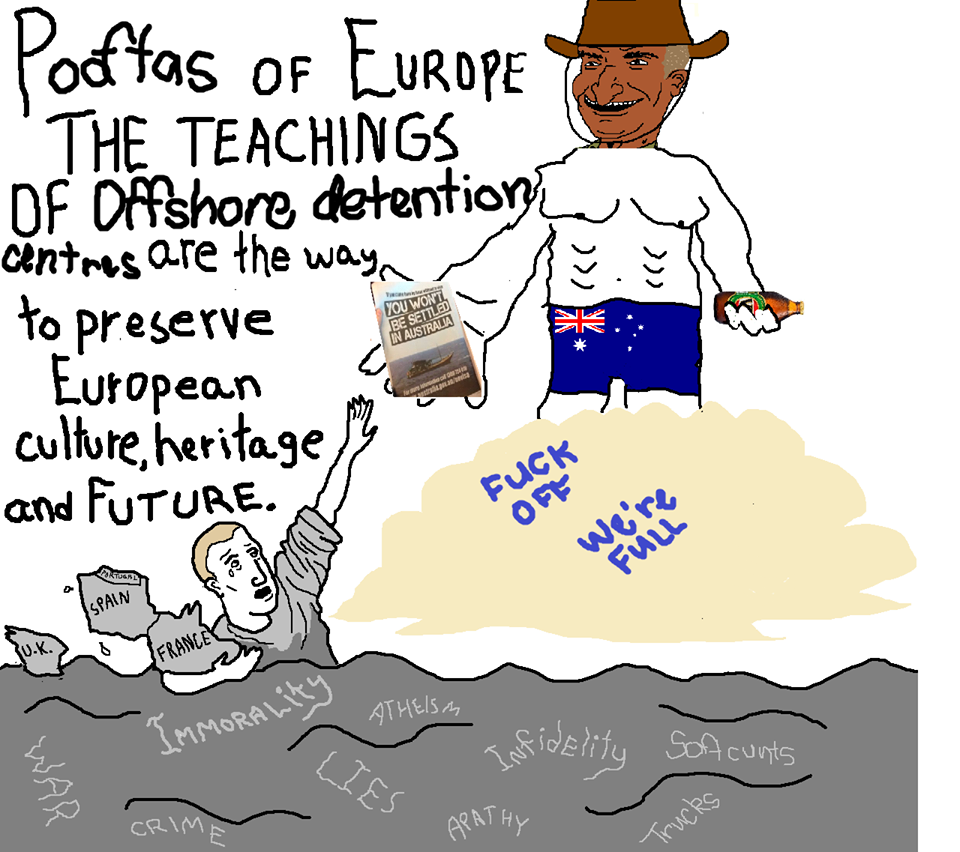 Pooftas OF EUROPE
THE TEACHINGS
OF Offshore detention
centres are the way
to preserve
European
culture, heritage
and FUTURE.
YOU WON'T
BE SETTLED
IN AUSTRALIA
FUCK
OFF
We're
FULL
PORTUGAL
SPAIN
U.K.
FRANCE
IMMORALITY
ATHEISM
Infidelity
Softcunts
WAR
LIES
CRIME
APATHY
Trucks